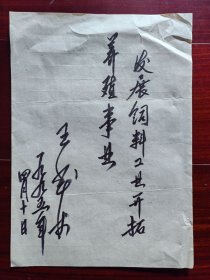 发展饲料工业开拓
养殖事业
王
一九九五年
四月十日